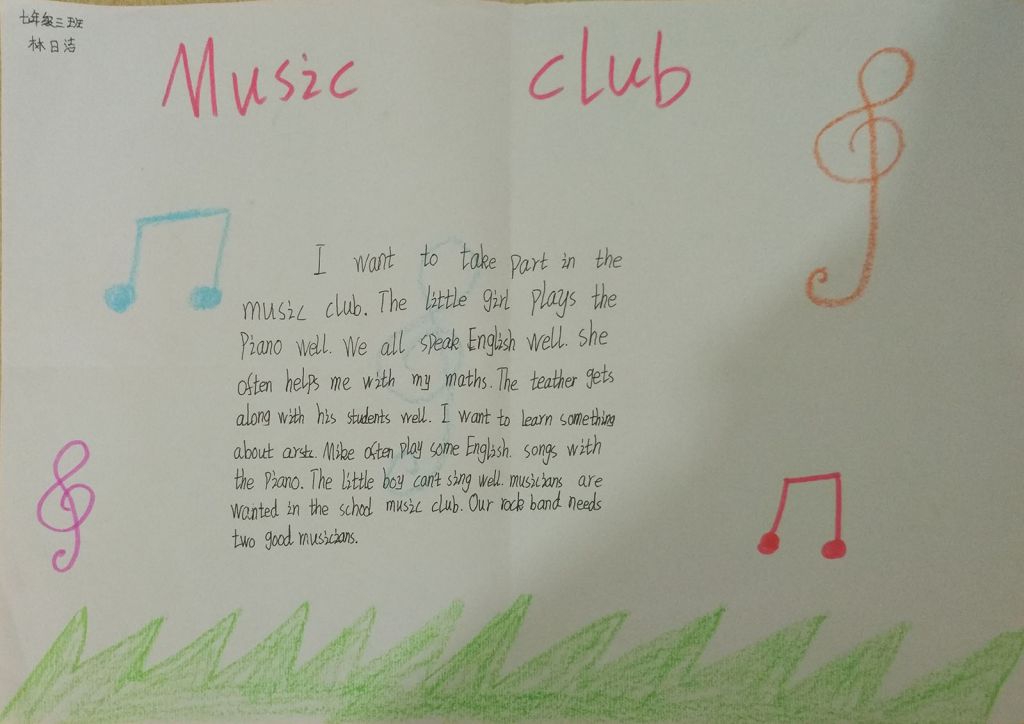 七年级三班
林日洁
Music club
I want to take part in the
music club. The little girl plays the
Piano well. We all speak English well. she
often helps me with my maths. The teather gets
along with his students well. I want to learn something
about arst. Mike often play some English. songs with
the Piano. The little boy can't sing well. musicians are
wanted in the school music club. Our rock band needs
two good musicians.